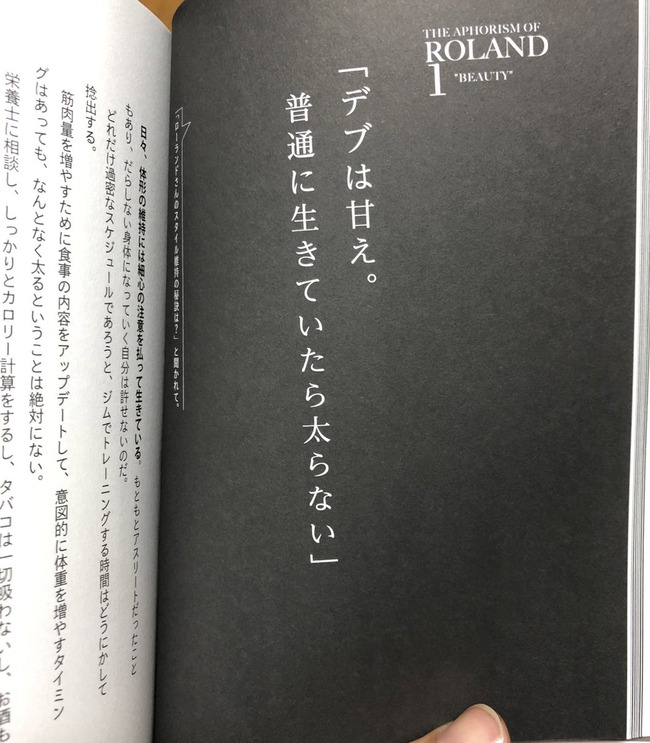 THE APHORISM OF
ROLAND
1 "BEAUTY"
「デブは甘え。
普通に生きていたら太らない」
「ローランドさんのスタイル維持の秘訣は？」と聞かれて。
日々、体形の維持には細心の注意を払って生きている。もともとアスリートだったこと
もあり、だらしない身体になっていく自分は許せないのだ。
どれだけ過密なスケジュールであろうと、ジムでトレーニングする時間はどうにかして
捻出する。
筋肉量を増やすために食事の内容をアップデートして、意図的に体重を増やすタイミン
グはあっても、なんとなく太るということは絶対にない。
栄養士に相談し、しっかりとカロリー計算をするし、タバコは一切吸わないし、お酒も